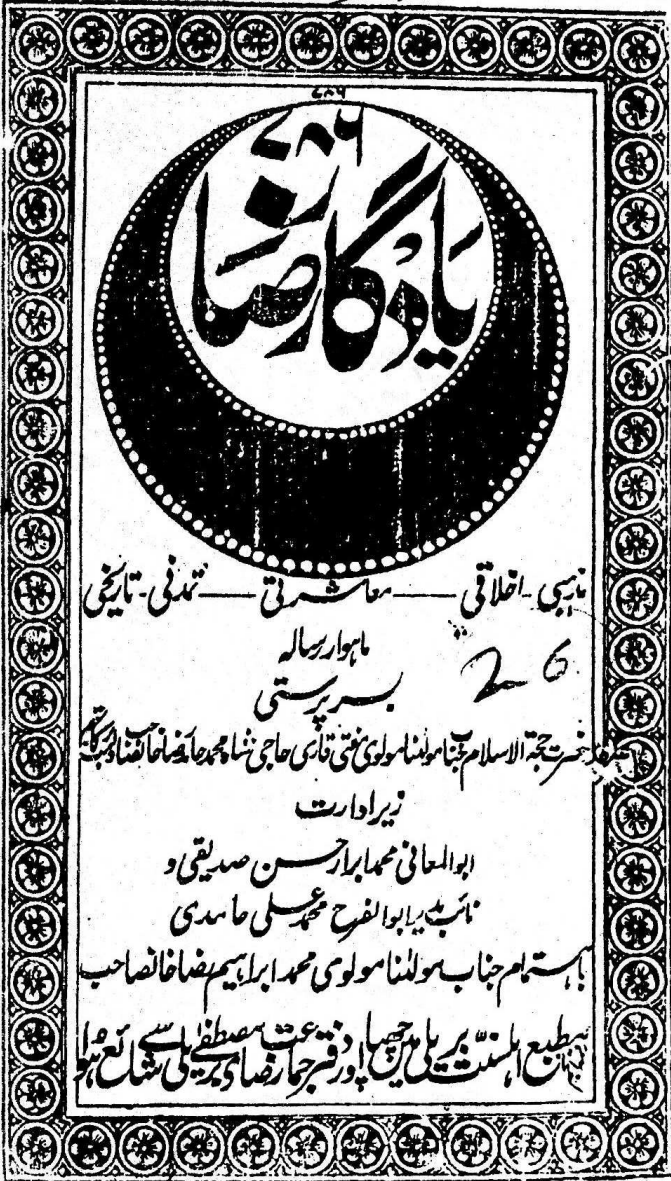 ۷۸۶
۷۸۶
یادگار رضا
مذہبی - اخلاقی — معاشرتی — تمدنی - تاریخی
ماہوار رسالہ
2 6
بسرپرستی
حضرت حجۃ الاسلام جناب مولٰنا مولوی مفتی قاری حاجی شاہ محمد حامد رضا خاں صاحب
زیر ادارت
ابوالمعانی محمد ابرار حسن صدیقی و
نائب مدیر ابوالفرح محمد علی حامدی
باہتمام جناب مولٰنا مولوی محمد ابراہیم رضا خانصاحب
مطبع اہلسنّت بریلی میں چھپا اور دفتر جماعت رضائے مصطفٰے بریلی سے شائع ہوا